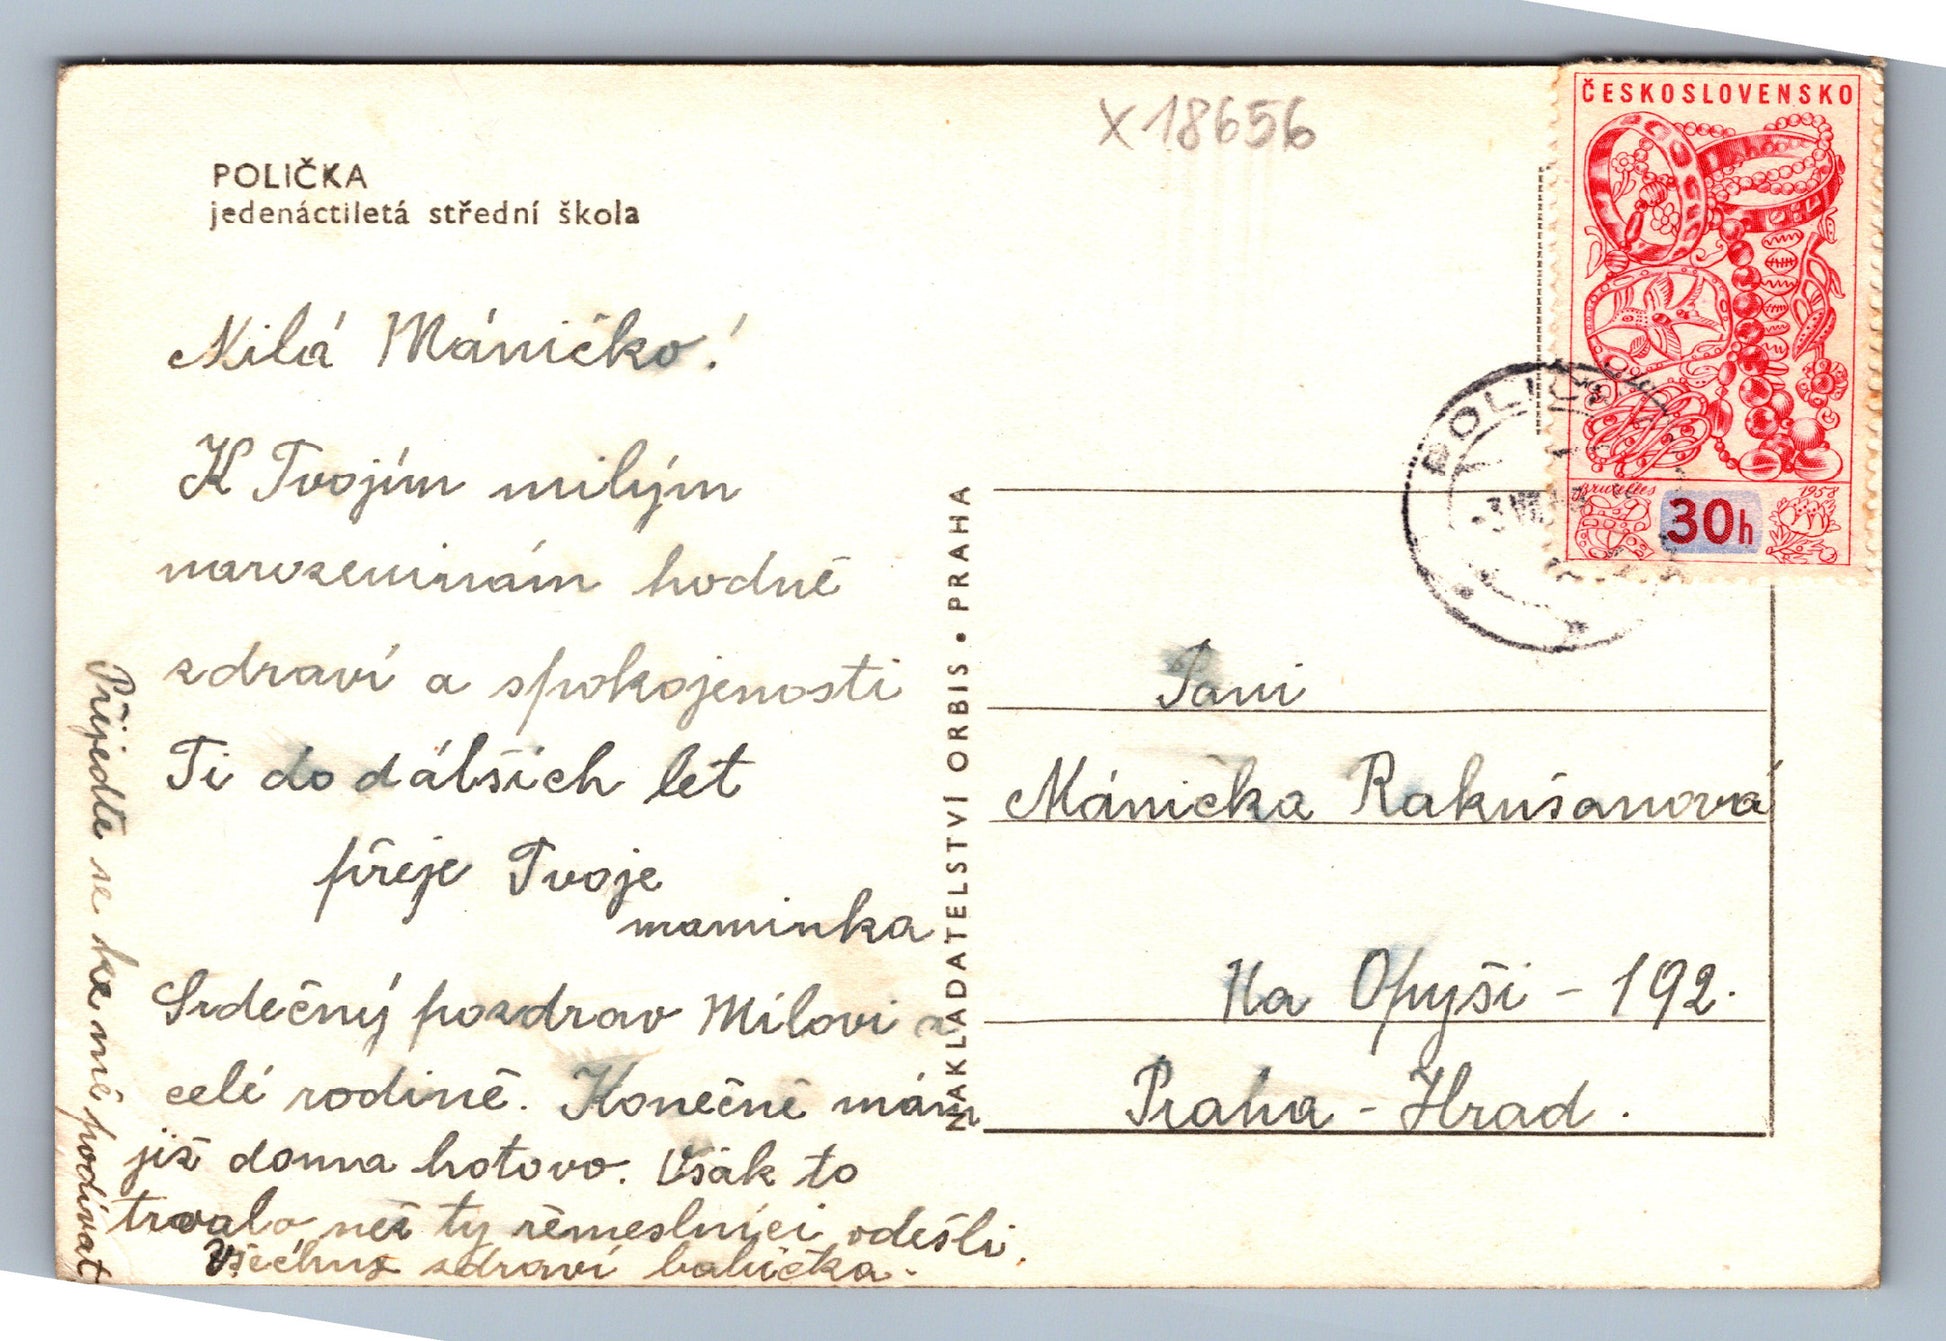 POLIČKA
jedenáctiletá střední škola
X 18656
ČESKOSLOVENSKO
Bruxelles 1958
30h
POLIČK
Milá Máničko!
K Tvojím milým
narozeninám hodně
zdraví a spokojenosti
Ti do dálších let
přeje Tvoje
maminka
Srdečný pozdrav Milovi a
celé rodině. Konečně mám
již doma hotovo. Však to
trvalo než ty řemeslníci odešli.
Všechny zdraví babička.
Přijeďte se ke mě podívat
NAKLADATELSTVÍ ORBIS • PRAHA
Paní
Mánička Rakušanová
Na Opyši - 192.
Praha - Hrad.